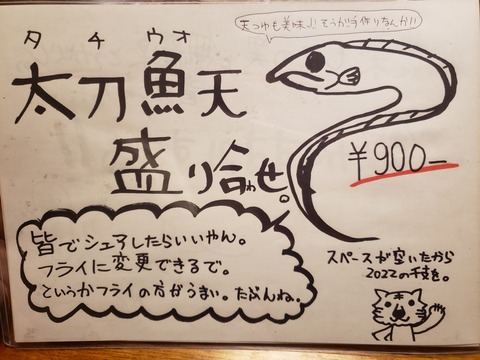 天つゆも美味♪!そらが手作りなんか!!
タチウオ
太刀魚天
盛り合わせ。
¥900−
皆でシェアしたらいいやん。
フライに変更できるで。
というかフライの方がうまい。たぶんね。
スペースが空いたから
2022の干支を。